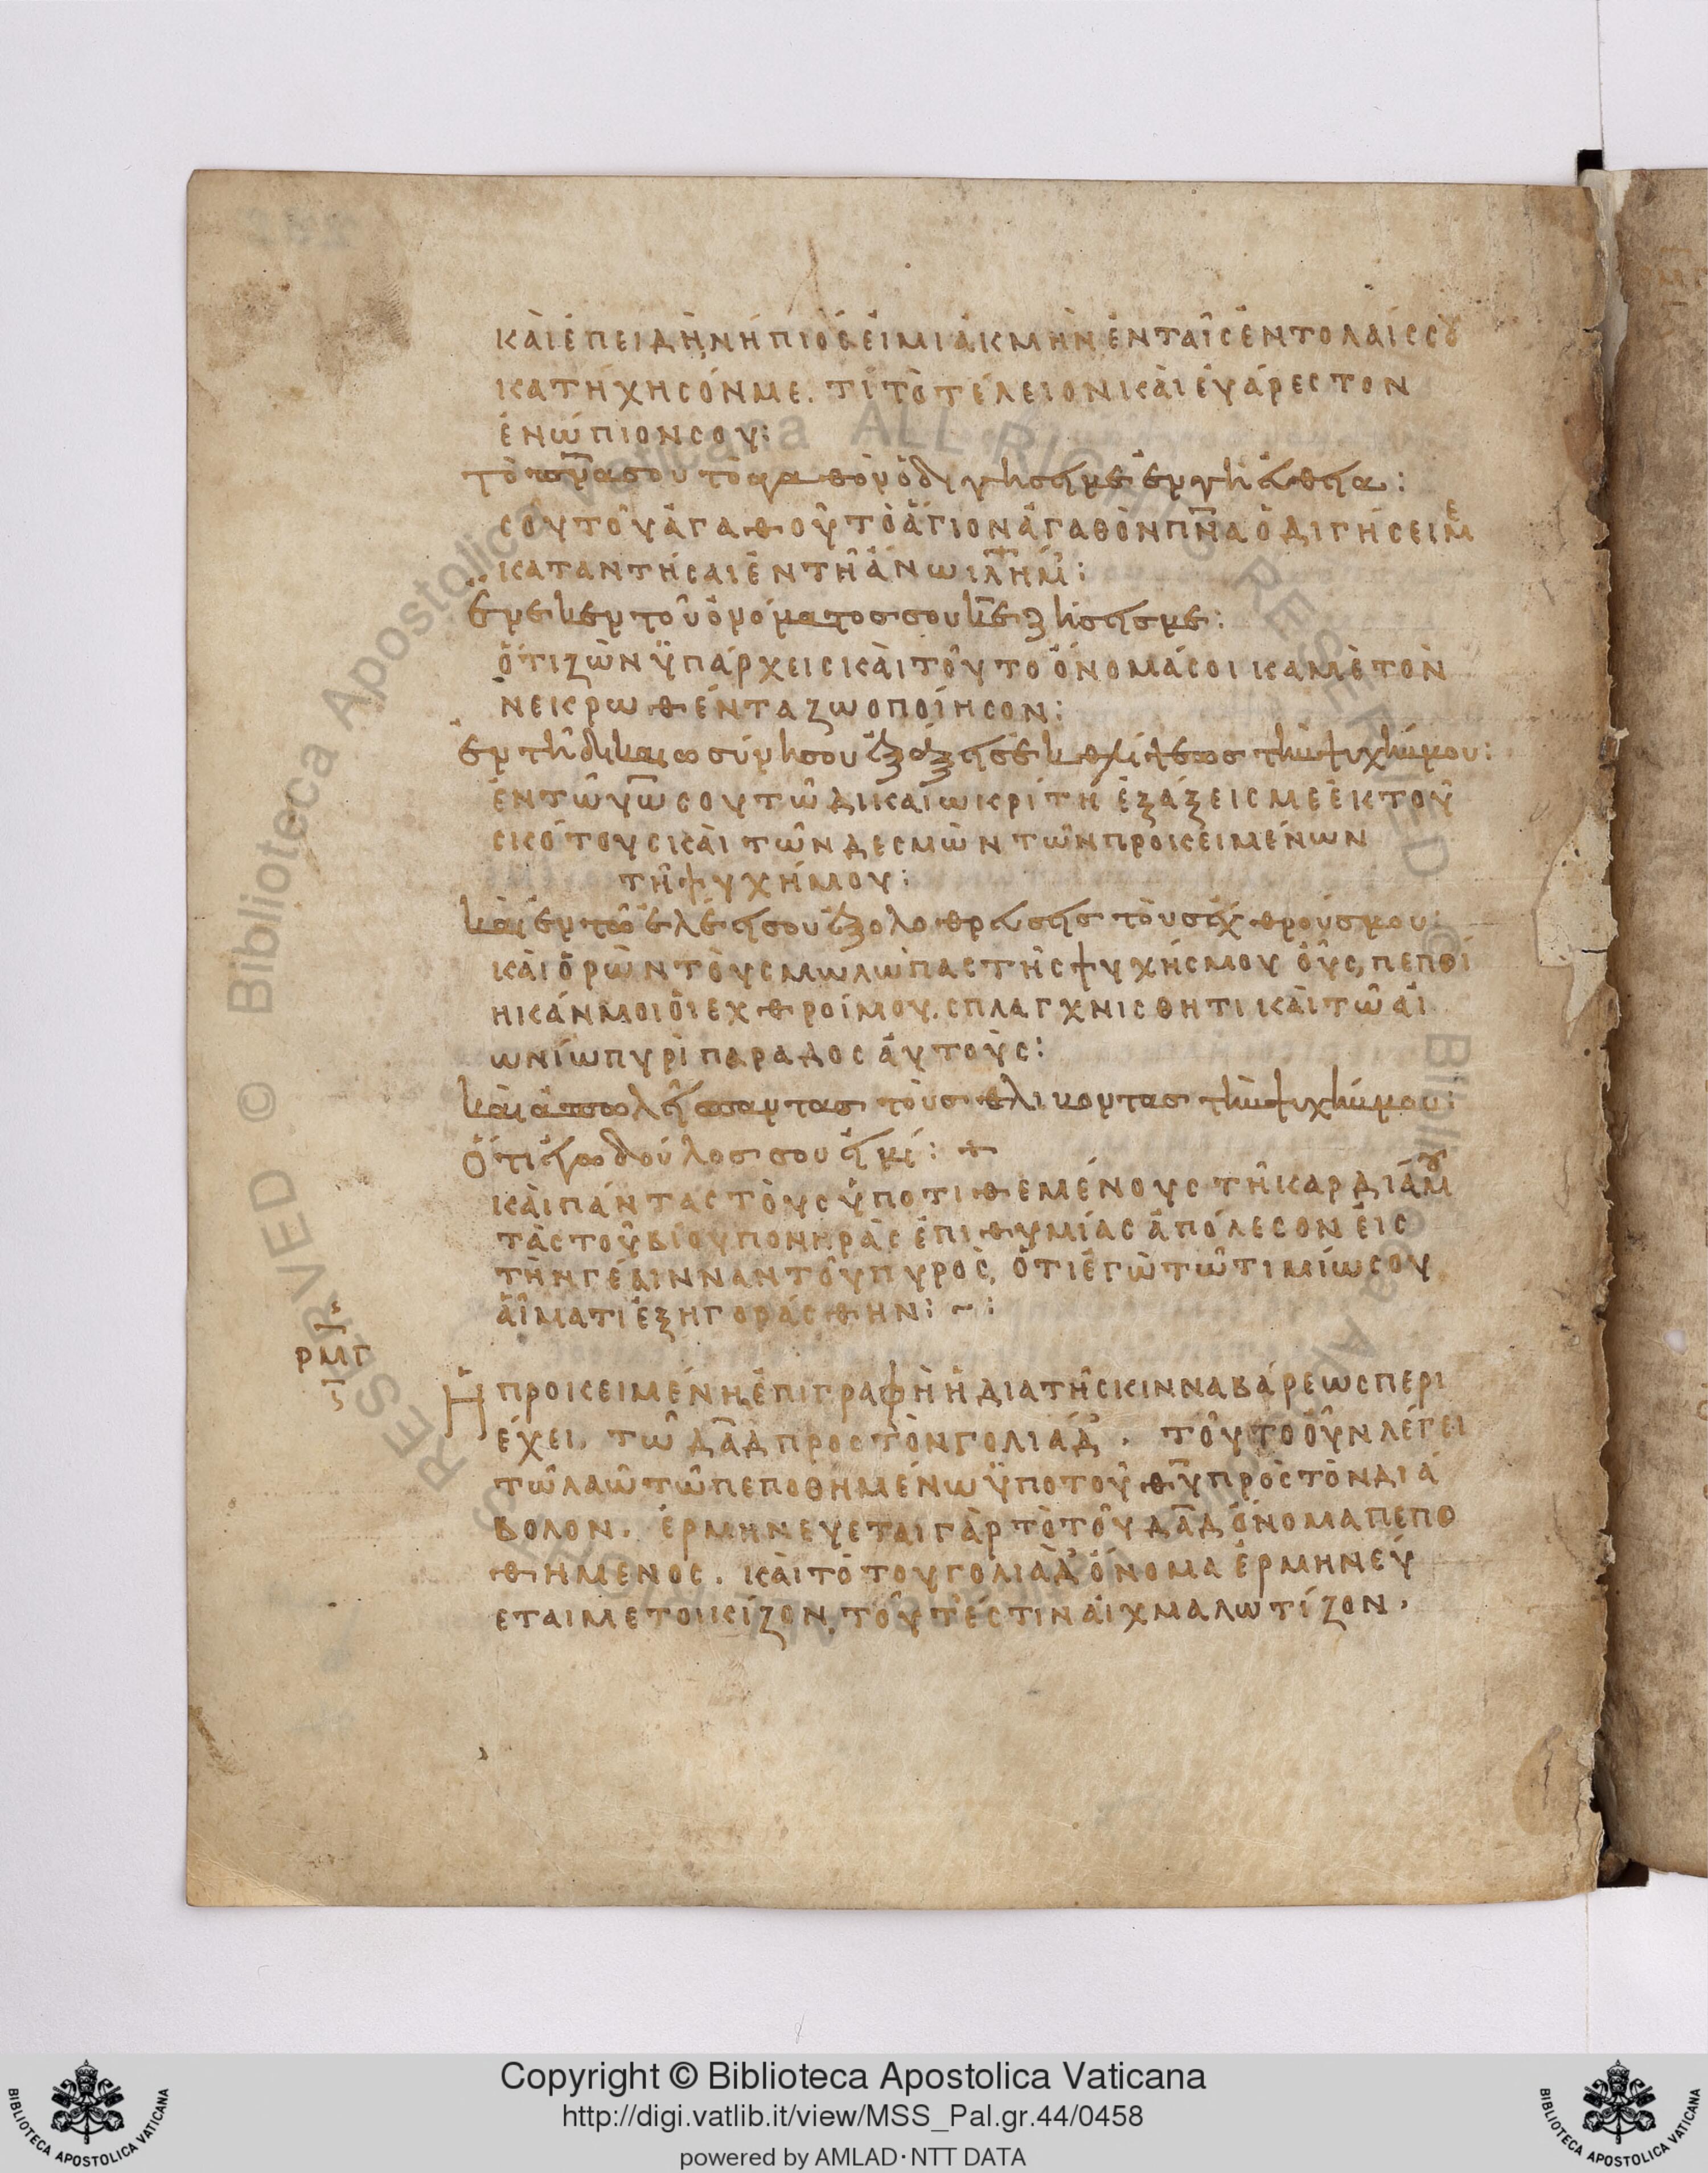 καὶ ἐπειδὴ νήπιός εἰμι ἀκμὴν ἐν ταῖς ἐντολαῖς σου
κατήχησόν με. τί τὸ τέλειον καὶ εὐάρεστον
ἐνώπιόν σου:
τὸ πνα σου τὸ ἀγαθὸν ὁδηγήσει με ἐν γῆ εὐθεία:
σοῦ τοῦ ἀγαθοῦ τὸ ἅγιον ἀγαθὸν πνα ὁδιγήσει με
καταντήσαι ἐν τῆ ἄνω ιλημ:
ἕνεκεν τοῦ ὀνόματός σου κε ζήσεις με:
ὅτι ζῶν ὑπάρχεις καὶ τοῦτο ὄνομά σοι καμὲ τὸν
νεκρωθέντα ζωοποίησον:
ἐν τῆ δικαιωσύνη σου ἐξάξεις ἐκ θλίψεως τὴν ψυχήν μου:
ἐν τῶ υω σου τῶ δικαίω κριτή ἐξάξεις με ἐκ τοῦ
σκότους καὶ τῶν δεσμῶν τῶν προκειμένων
τῆ ψυχή μου:
καὶ ἐν τῶ ἐλέει σου ἐξολοθρεύσεις τοὺς ἐχθρούς μου:
καὶ ὁρῶν τοὺς μώλωπας τῆς ψυχής μου οὓς πεποι
ήκάν μοι οἱ εχθροί μου. σπλαγχνισθητι καὶ τῶ αἰ
ωνίω πυρὶ παραδος αὐτοὺς:
καὶ ἀπολεῖς πάντας τοὺς θλίβοντας τὴν ψυχήν μου:
ὅτι ἐγὼ δούλός σου εἰμί: +
καὶ πάντας τοὺς ὑποτιθεμένους τῆ καρδιά μου
τὰς τοῦ βίου πονηρὰς ἐπιθυμίας ἀπόλεσον εἰς
τὴν γέειννναν τοῦ πυρός, ὅτι ἐγὼ τῶ τιμίω σου
αἵματι ἐξηγοράσθην: ~:
ρμγ
Ἡ προκειμένη ἐπιγραφὴ ἡ δια τῆς κινναβάρεως περι
έχει. τῶ δαδ προς τὸν γολιάδ. τοῦτο οὖν λέγει
τῶ λαῶ τῶ πεποθημένω ὑπο τοῦ θυ προς τὸν διά
βολον. ἑρμηνευεται γὰρ τὸ τοῦ δαδ όνομα πεπο
θημενος. καὶ τὸ του γολιὰδ ὄνομα ἑρμηνεύ
εται μετοικίζον, τοῦτ' ἐστιν αἰχμαλωτίζον.
Copyright © Biblioteca Apostolica Vaticana
http://digi.vatlib.it/view/MSS_Pal.gr.44/0458
powered by AMLAD·NTT DATA